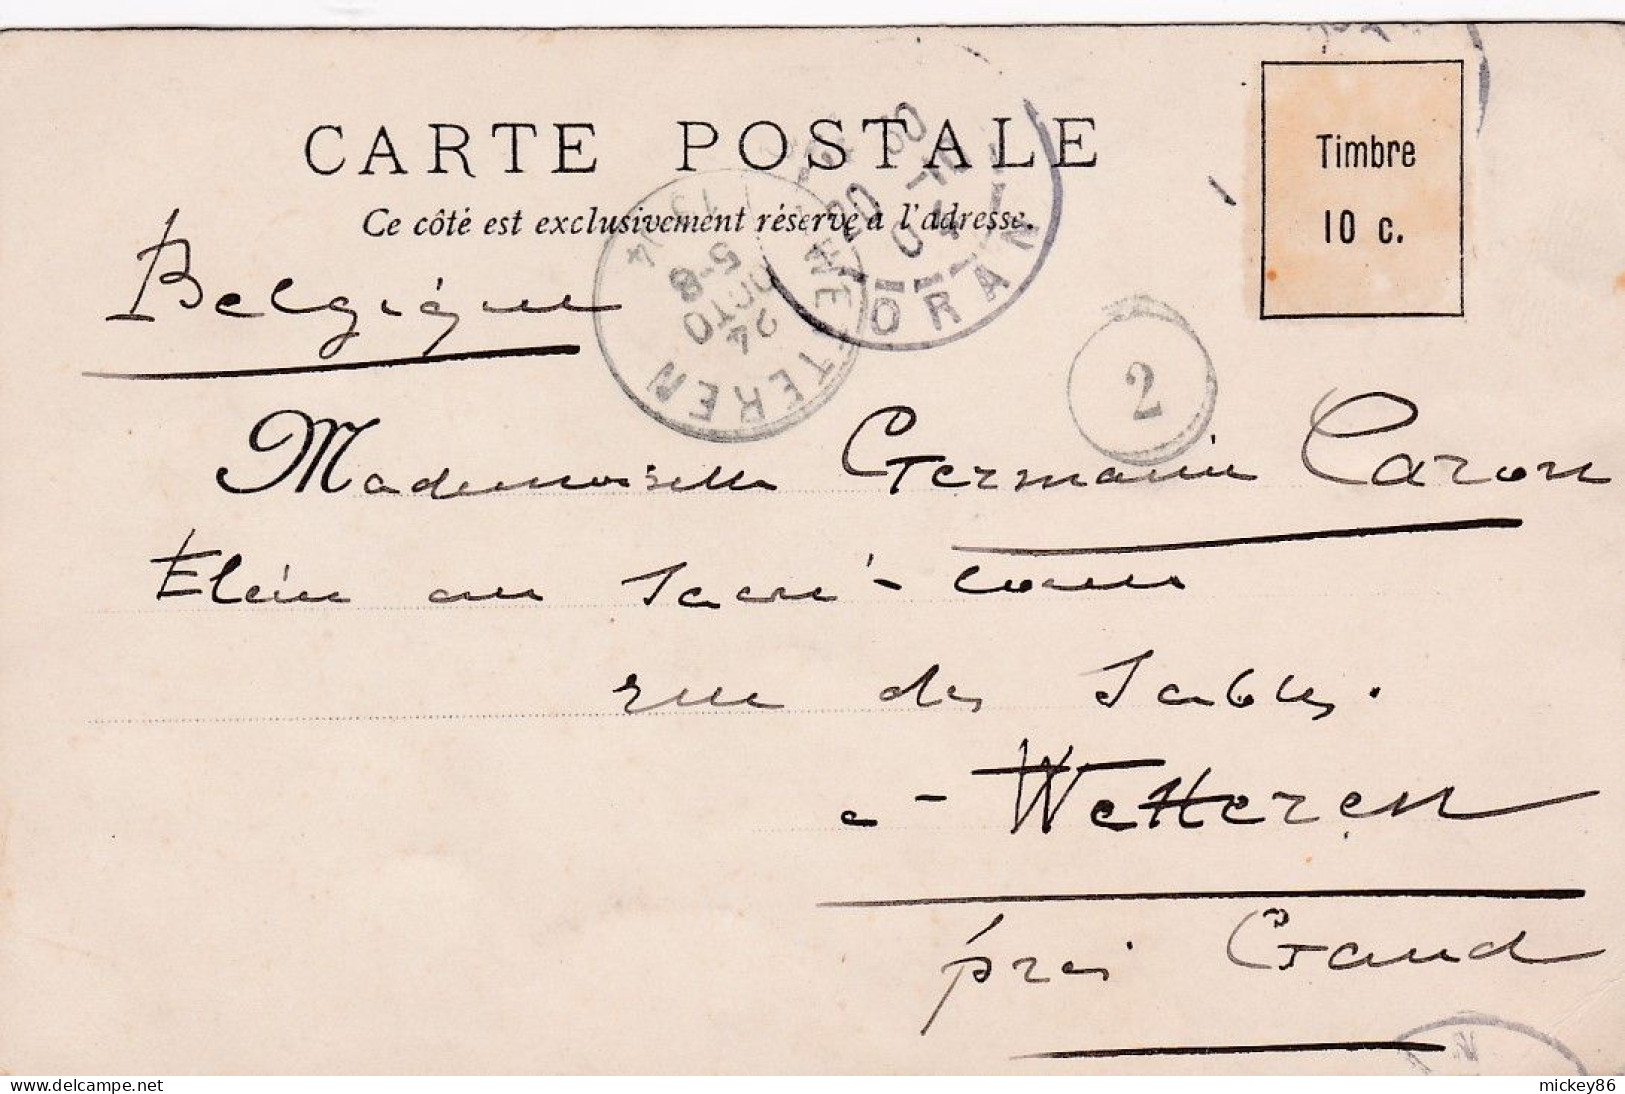 CARTE POSTALE
Ce côté est exclusivement réservé à l'adresse.
Timbre
10 c.
Belgique
ORAN
WETTEREN
24
OCTO
5-8
1904
2
Mademoiselle Germaine Caron
Elève au Sacré-Cœur
rue des Sables.
à Wetteren
près Gand
mickey86